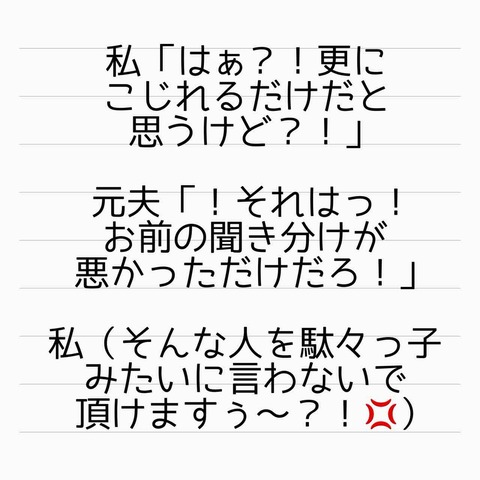 私「はぁ？！更に
こじれるだけだと
思うけど？！」
元夫「！それはっ！
お前の聞き分けが
悪かっただけだろ！」
私（そんな人を駄々っ子
みたいに言わないで
頂けますぅ〜？！💢）